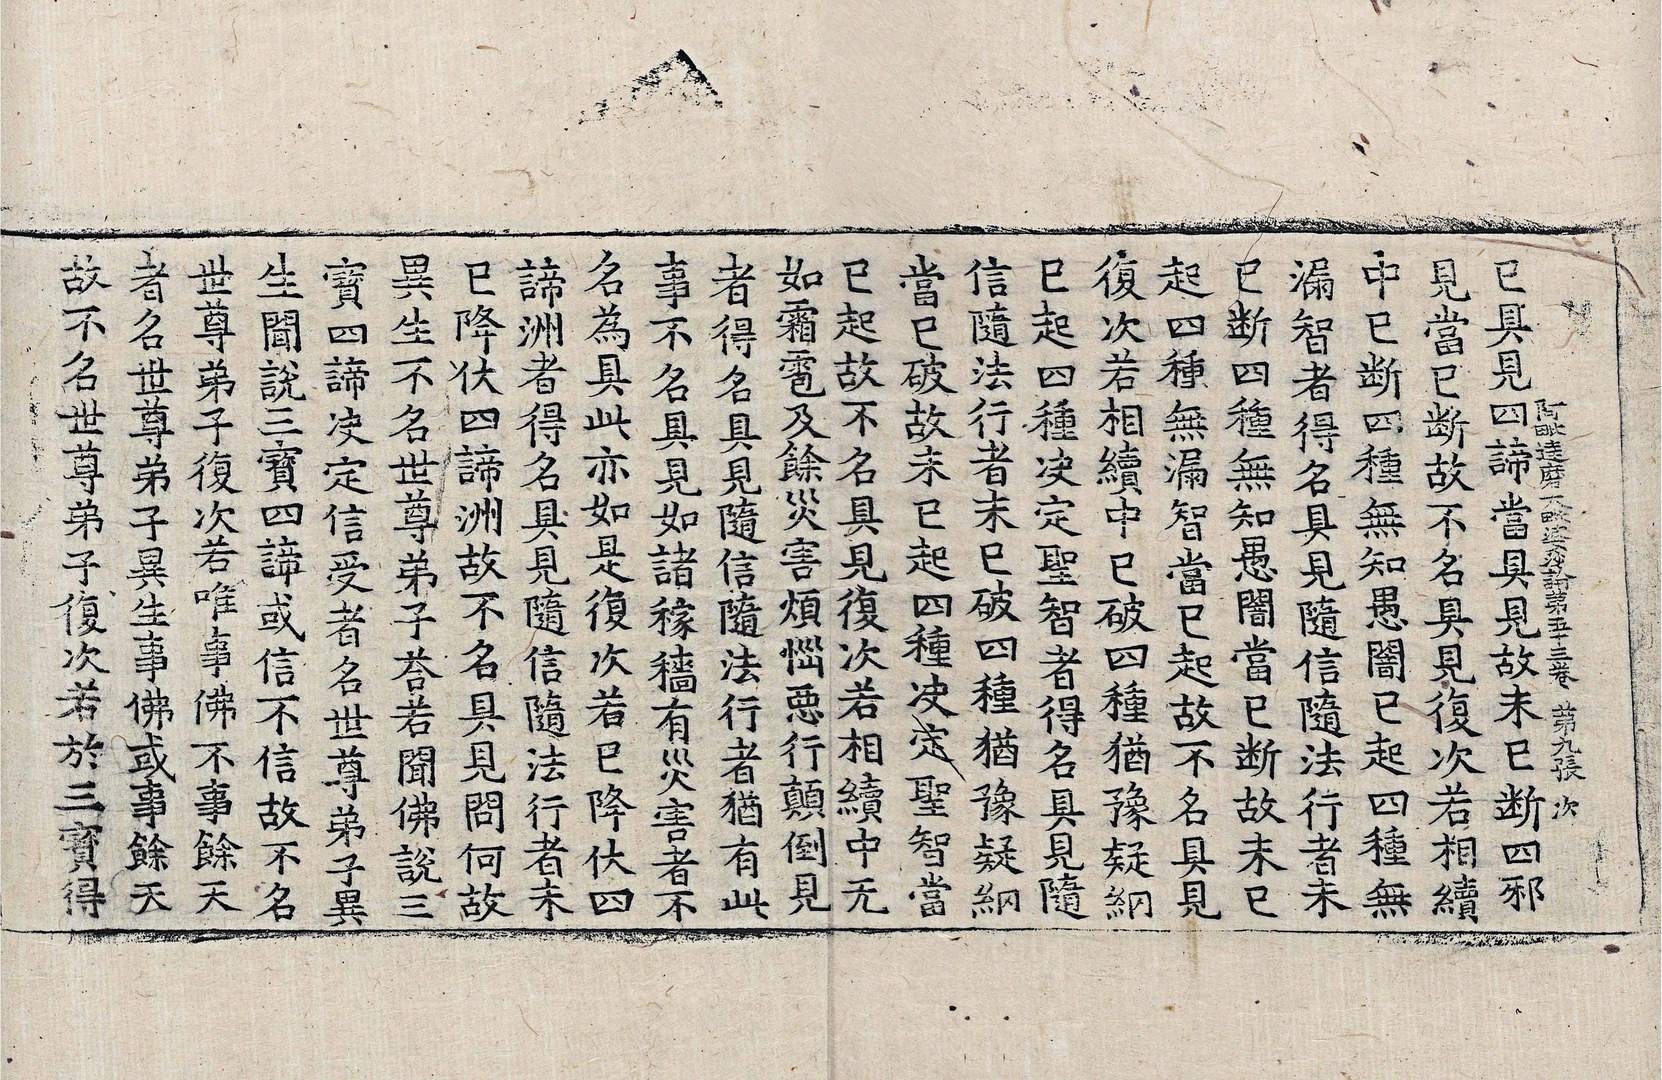 阿毗達磨大毗婆沙論第五十三卷　第九張　次
已具見四諦當具見故未已断四邪
見當已断故不名具見復次若相續
中已断四種無知愚闇已起四種無
漏智者得名具見隨信隨法行者未
已断四種無知愚闇當已断故未已
起四種無漏智當已起故不名具見
復次若相續中已破四種猶豫疑網
已起四種决定聖智者得名具見隨
信隨法行者未已破四種猶豫疑網
當已破故未已起四種决定聖智當
已起故不名具見復次若相續中无
如霜雹及餘災害煩惱惡行顛倒見
者得名具見隨信隨法行者猶有此
事不名具見如諸稼穡有災害者不
名為具此亦如是復次若已降伏四
諦洲者得名具見隨信隨法行者未
已降伏四諦洲故不名具見問何故
異生不名世尊弟子荅若聞佛說三
寶四諦决定信受者名世尊弟子異
生聞說三寶四諦或信不信故不名
世尊弟子復次若唯事佛不事餘天
者名世尊弟子異生事佛或事餘天
故不名世尊弟子復次若於三寶得